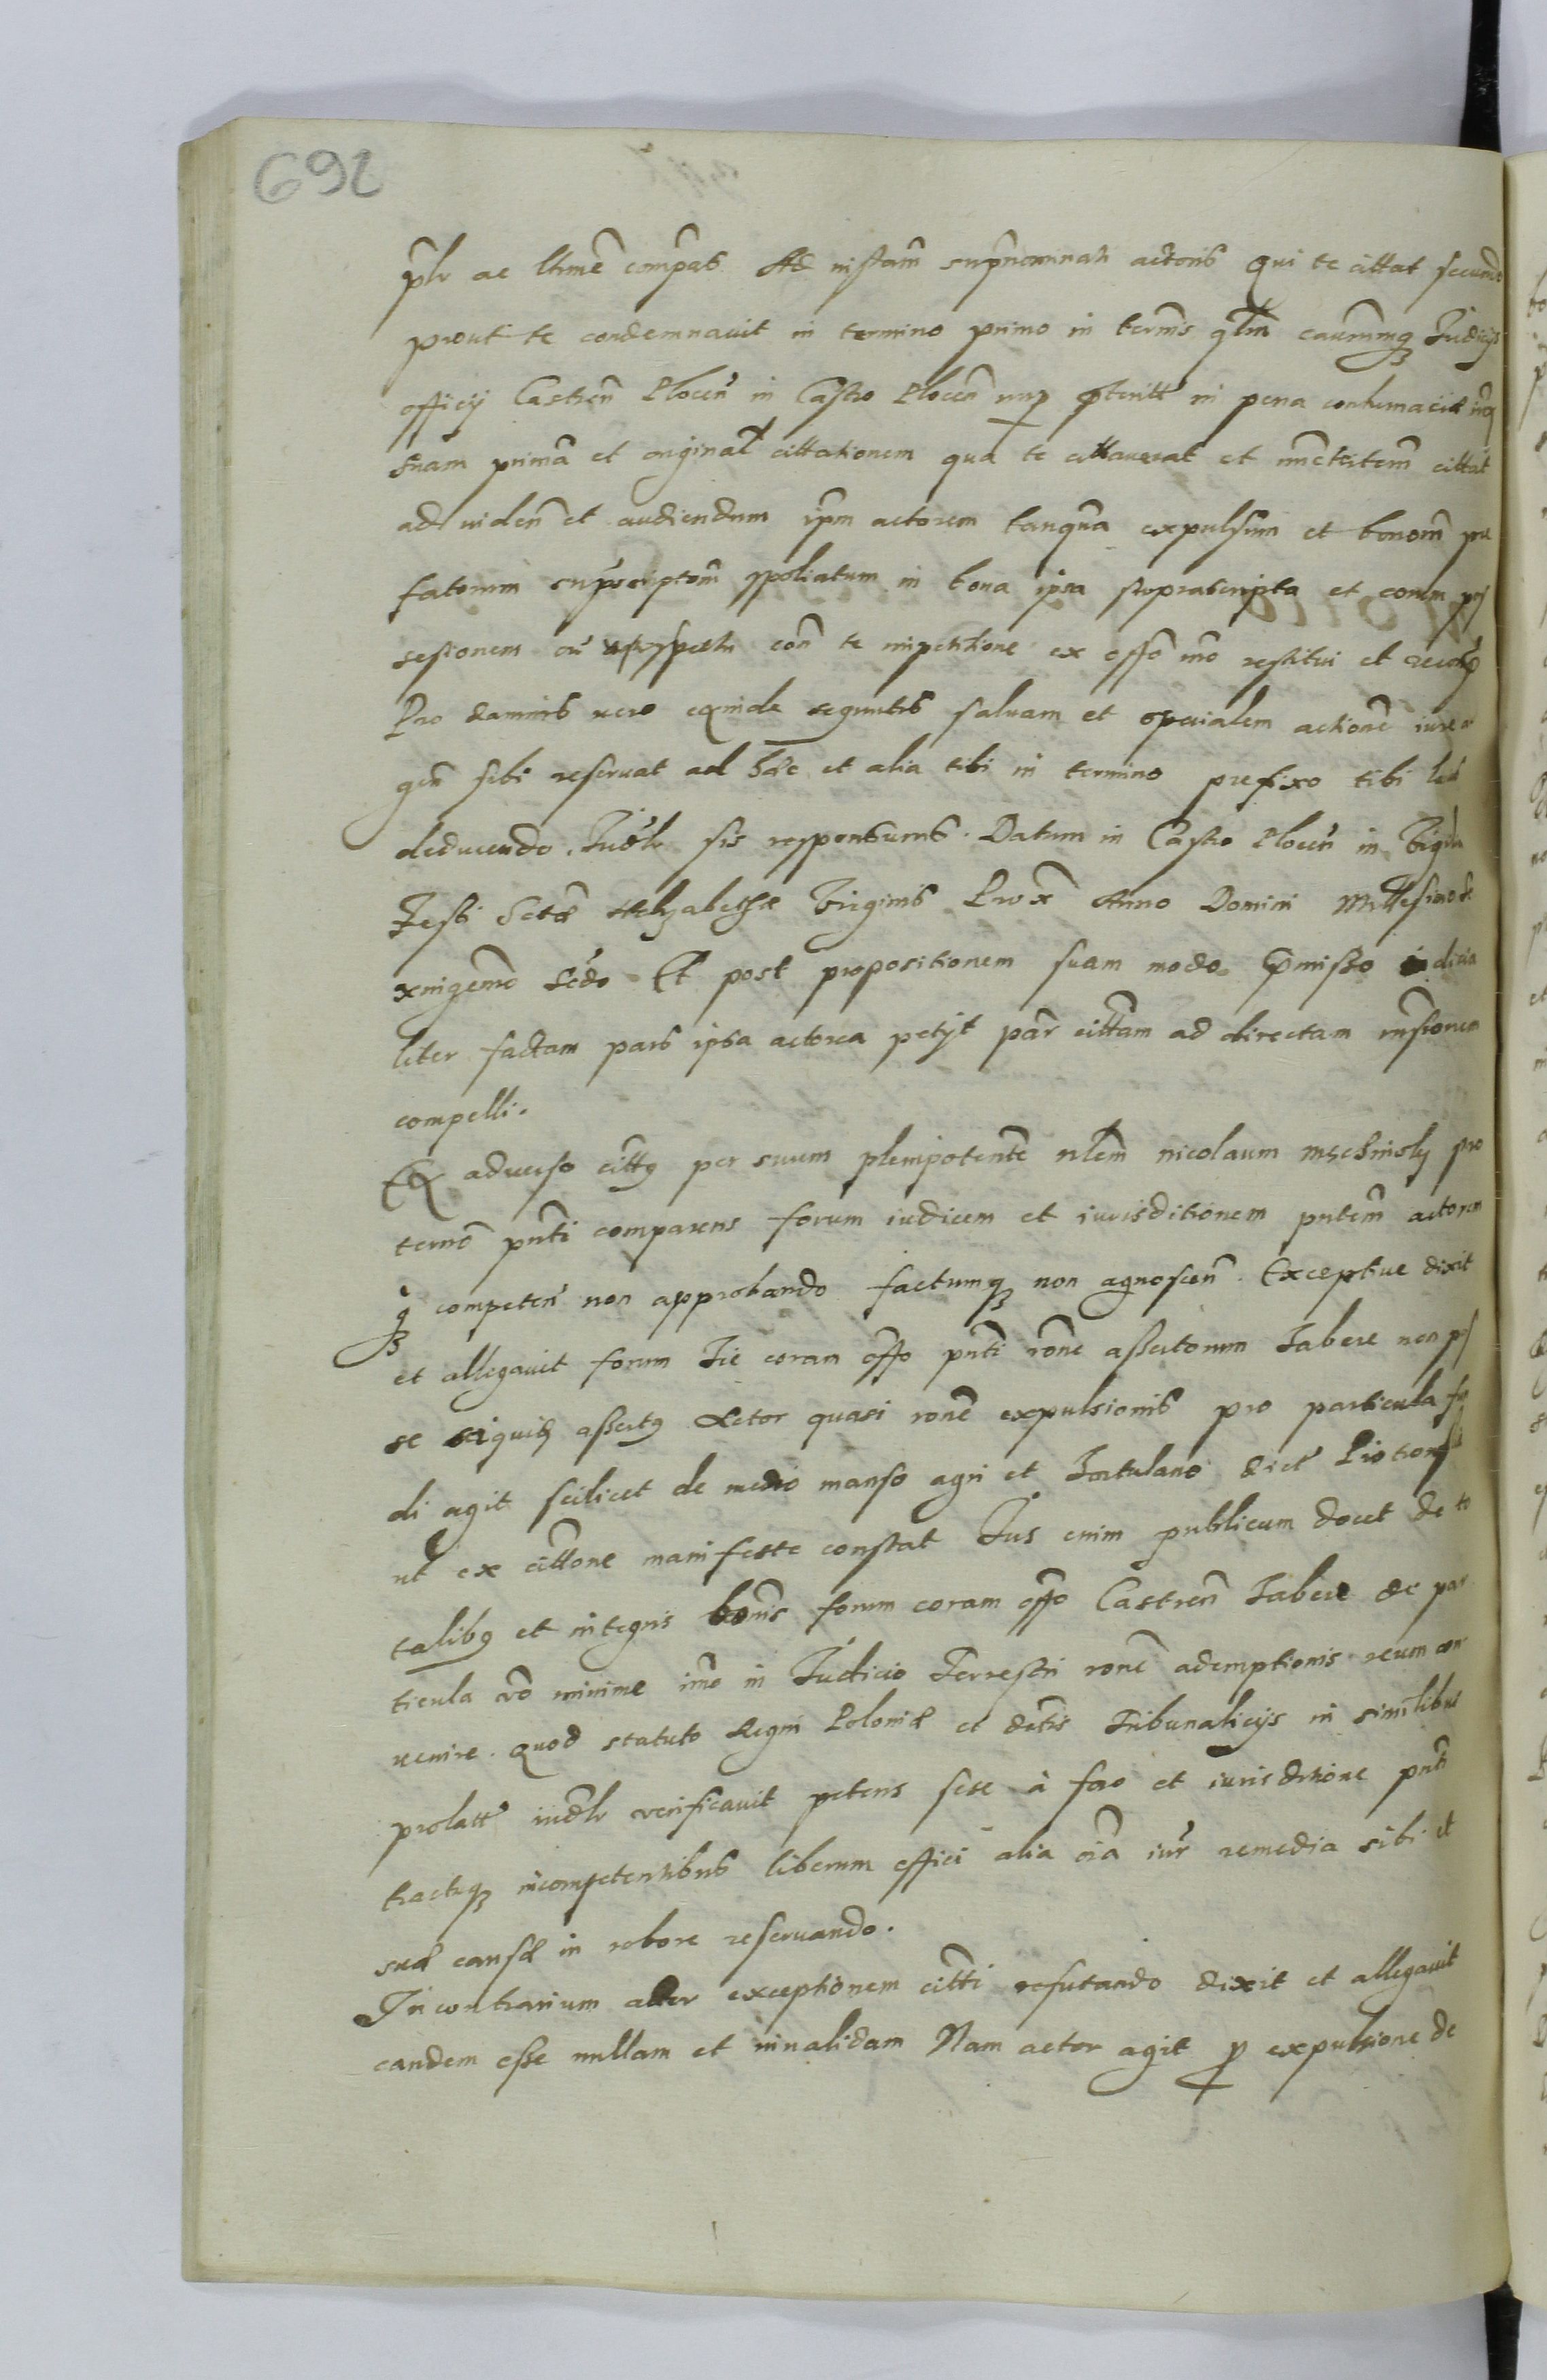 692
p̃lr ac lt̃ime comp̃as Ad instam̃ supñominati actoris Qui te cittat secundo
prout te condemnauit in termino primo in term̃is q̃lm causarumq; Judicijs
officij Castreñ Ploceñ in Castro Ploceñ nup p̃teritt in pena contumaciæ
suam primã et original̃ cittationem qua te cittauerat et cittat
ad uideñ et audiendum ip̃m actorem tanquã expulsum et bonorũ præ
fatorum sup̃scriptorũ spoliatum in bona ipsa suprascripta et eorum pos
sesionem coñ te impetitione ex offo restitui et
Pro damnis uero exinde sequutis saluam et specialem actionẽ iure a
geñ sibi reseruat ad hæc et alia tibi in termino prefixo tibi
deducendo Jud̃lr sis responsurus. Datum in Castro Ploceñ in Vigilia
Festi Sctæ Helzabethæ Virginis Prox̃ Anno Domini Millesimo Se
xingen̄mo Scdo Et post propositionem suam modo p̃misso iudicia
liter factam pars ipsa actorea petijt par̃ citt̃am ad directam rñsionem
compelli.
Ex aduerso citt9 per suum plenipotentẽ n̄lem nicolaum pro
termõ pñti comparens forum iudicem et iurisditionem pñtem actorem
q; competeñ non approbando factumq; non agnosceñ. Exceptiue dixit
et allegauit forum hic coram offo pñti rõne assertorum habere non pos
se siquid assert9 Actor quasi ronẽ expulsionis pro particula fun
di agit scilicet de medio manso agri et hortulano dict̃
ut ex cittone manifeste constat Jus enim publicum docet de to
talib9 et integris bonis forum coram offo Castreñ habere de par
ticula vo minime imo in Judicio Terrestri ronẽ ademptionis reum con
uenire. quod statuto Regni Poloniæ et dẽtis Tribunalicijs in similibus
prolatt̃ iud̃lr verificauit petens sese à foro et iurisditione pñti
tractuq; incompetentibus liberum effici alia oĩa iur̃ remedia sibi et
suæ causæ in robore reseruando.
In contrarium actor exceptionem citti refutando dixit et allegauit
eandem esse nullam et inualidam Nam actor agit p expulsione de